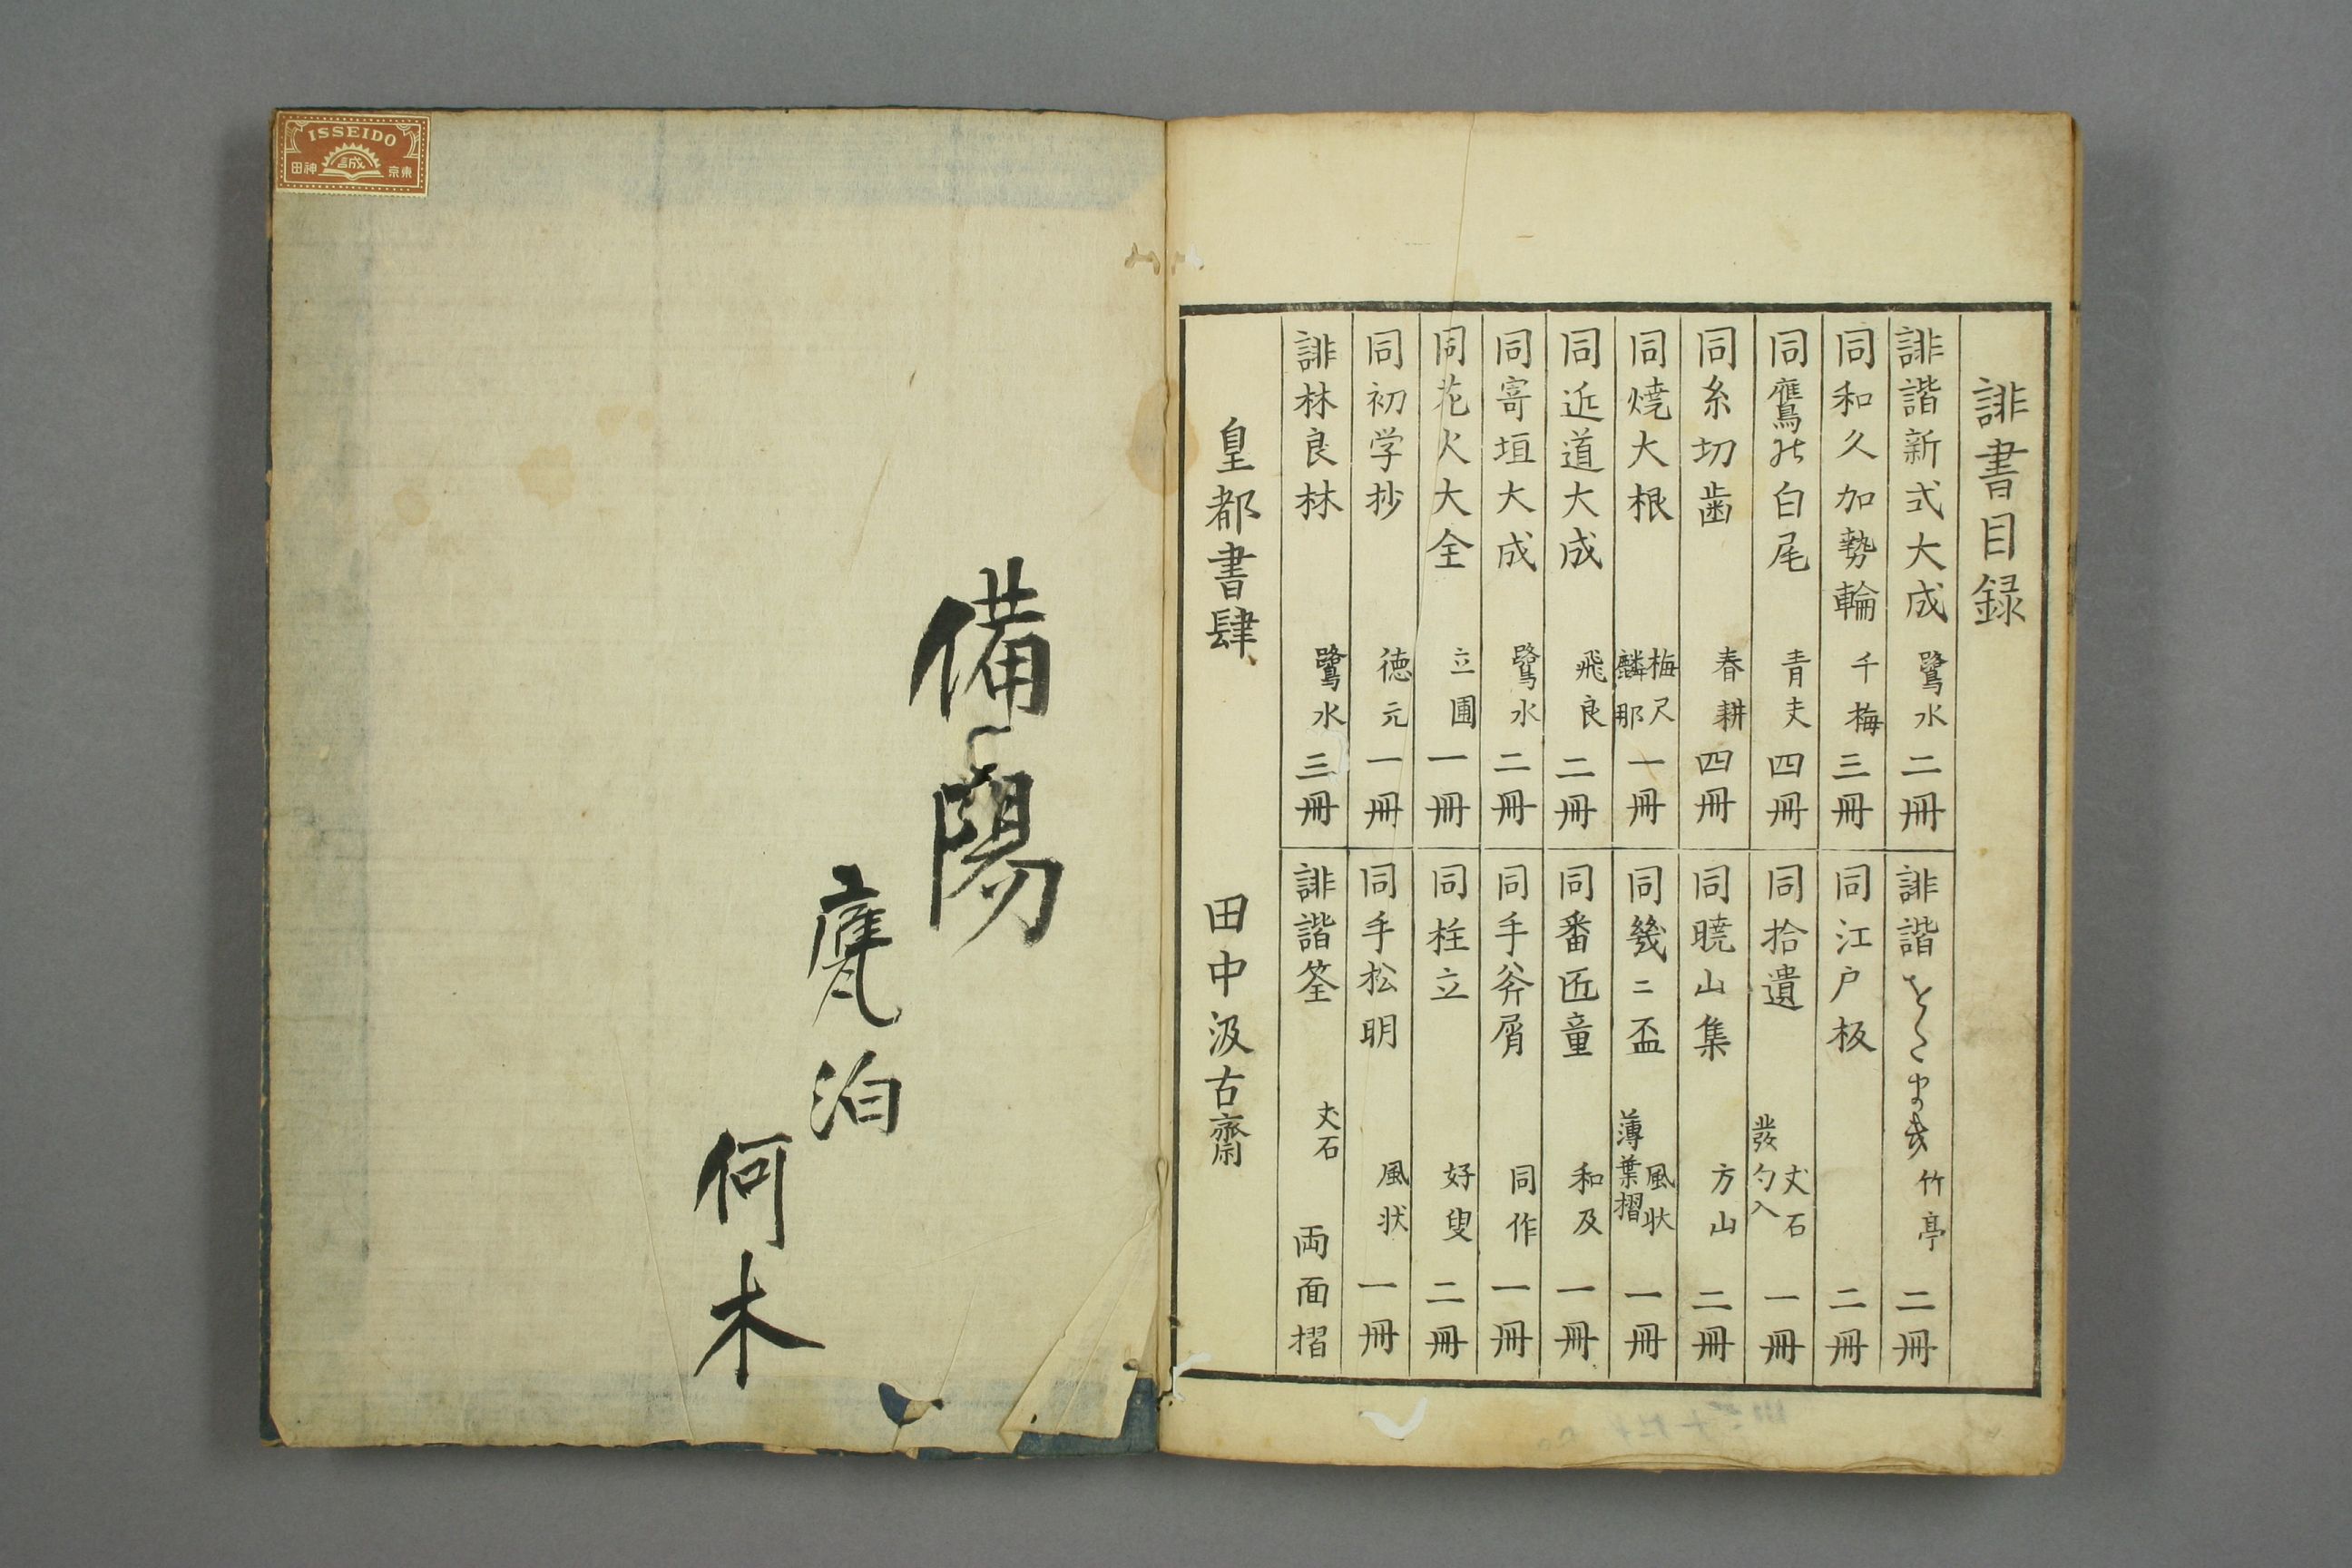 誹書目録
誹諧新式大成 鷺水 二冊
同和久加勢輪 千梅 三冊
同鷹の白尾 青夫 四冊
同糸切歯 春耕 四冊
同焼大根 梅尺 麟那 一冊
同近道大成 飛良 二冊
同寄垣大成 鷺水 二冊
同花火大全 立圃 一冊
同初学抄 徳元 一冊
誹林良材 鷺水 三冊
誹諧をだまき 竹亭 二冊
同江戸板 二冊
同拾遺 丈石 発句入 一冊
同暁山集 方山 二冊
同幾二盃 風状 薄葉摺 一冊
同番匠童 和及 一冊
同手斧屑 同作 一冊
同柱立 好叟 二冊
同手松明 風状 一冊
誹諧筌 丈石 両面摺
皇都書肆 田中汲古齋
備陽
甕泊
何木
ISSEIDO
誠
東京
神田